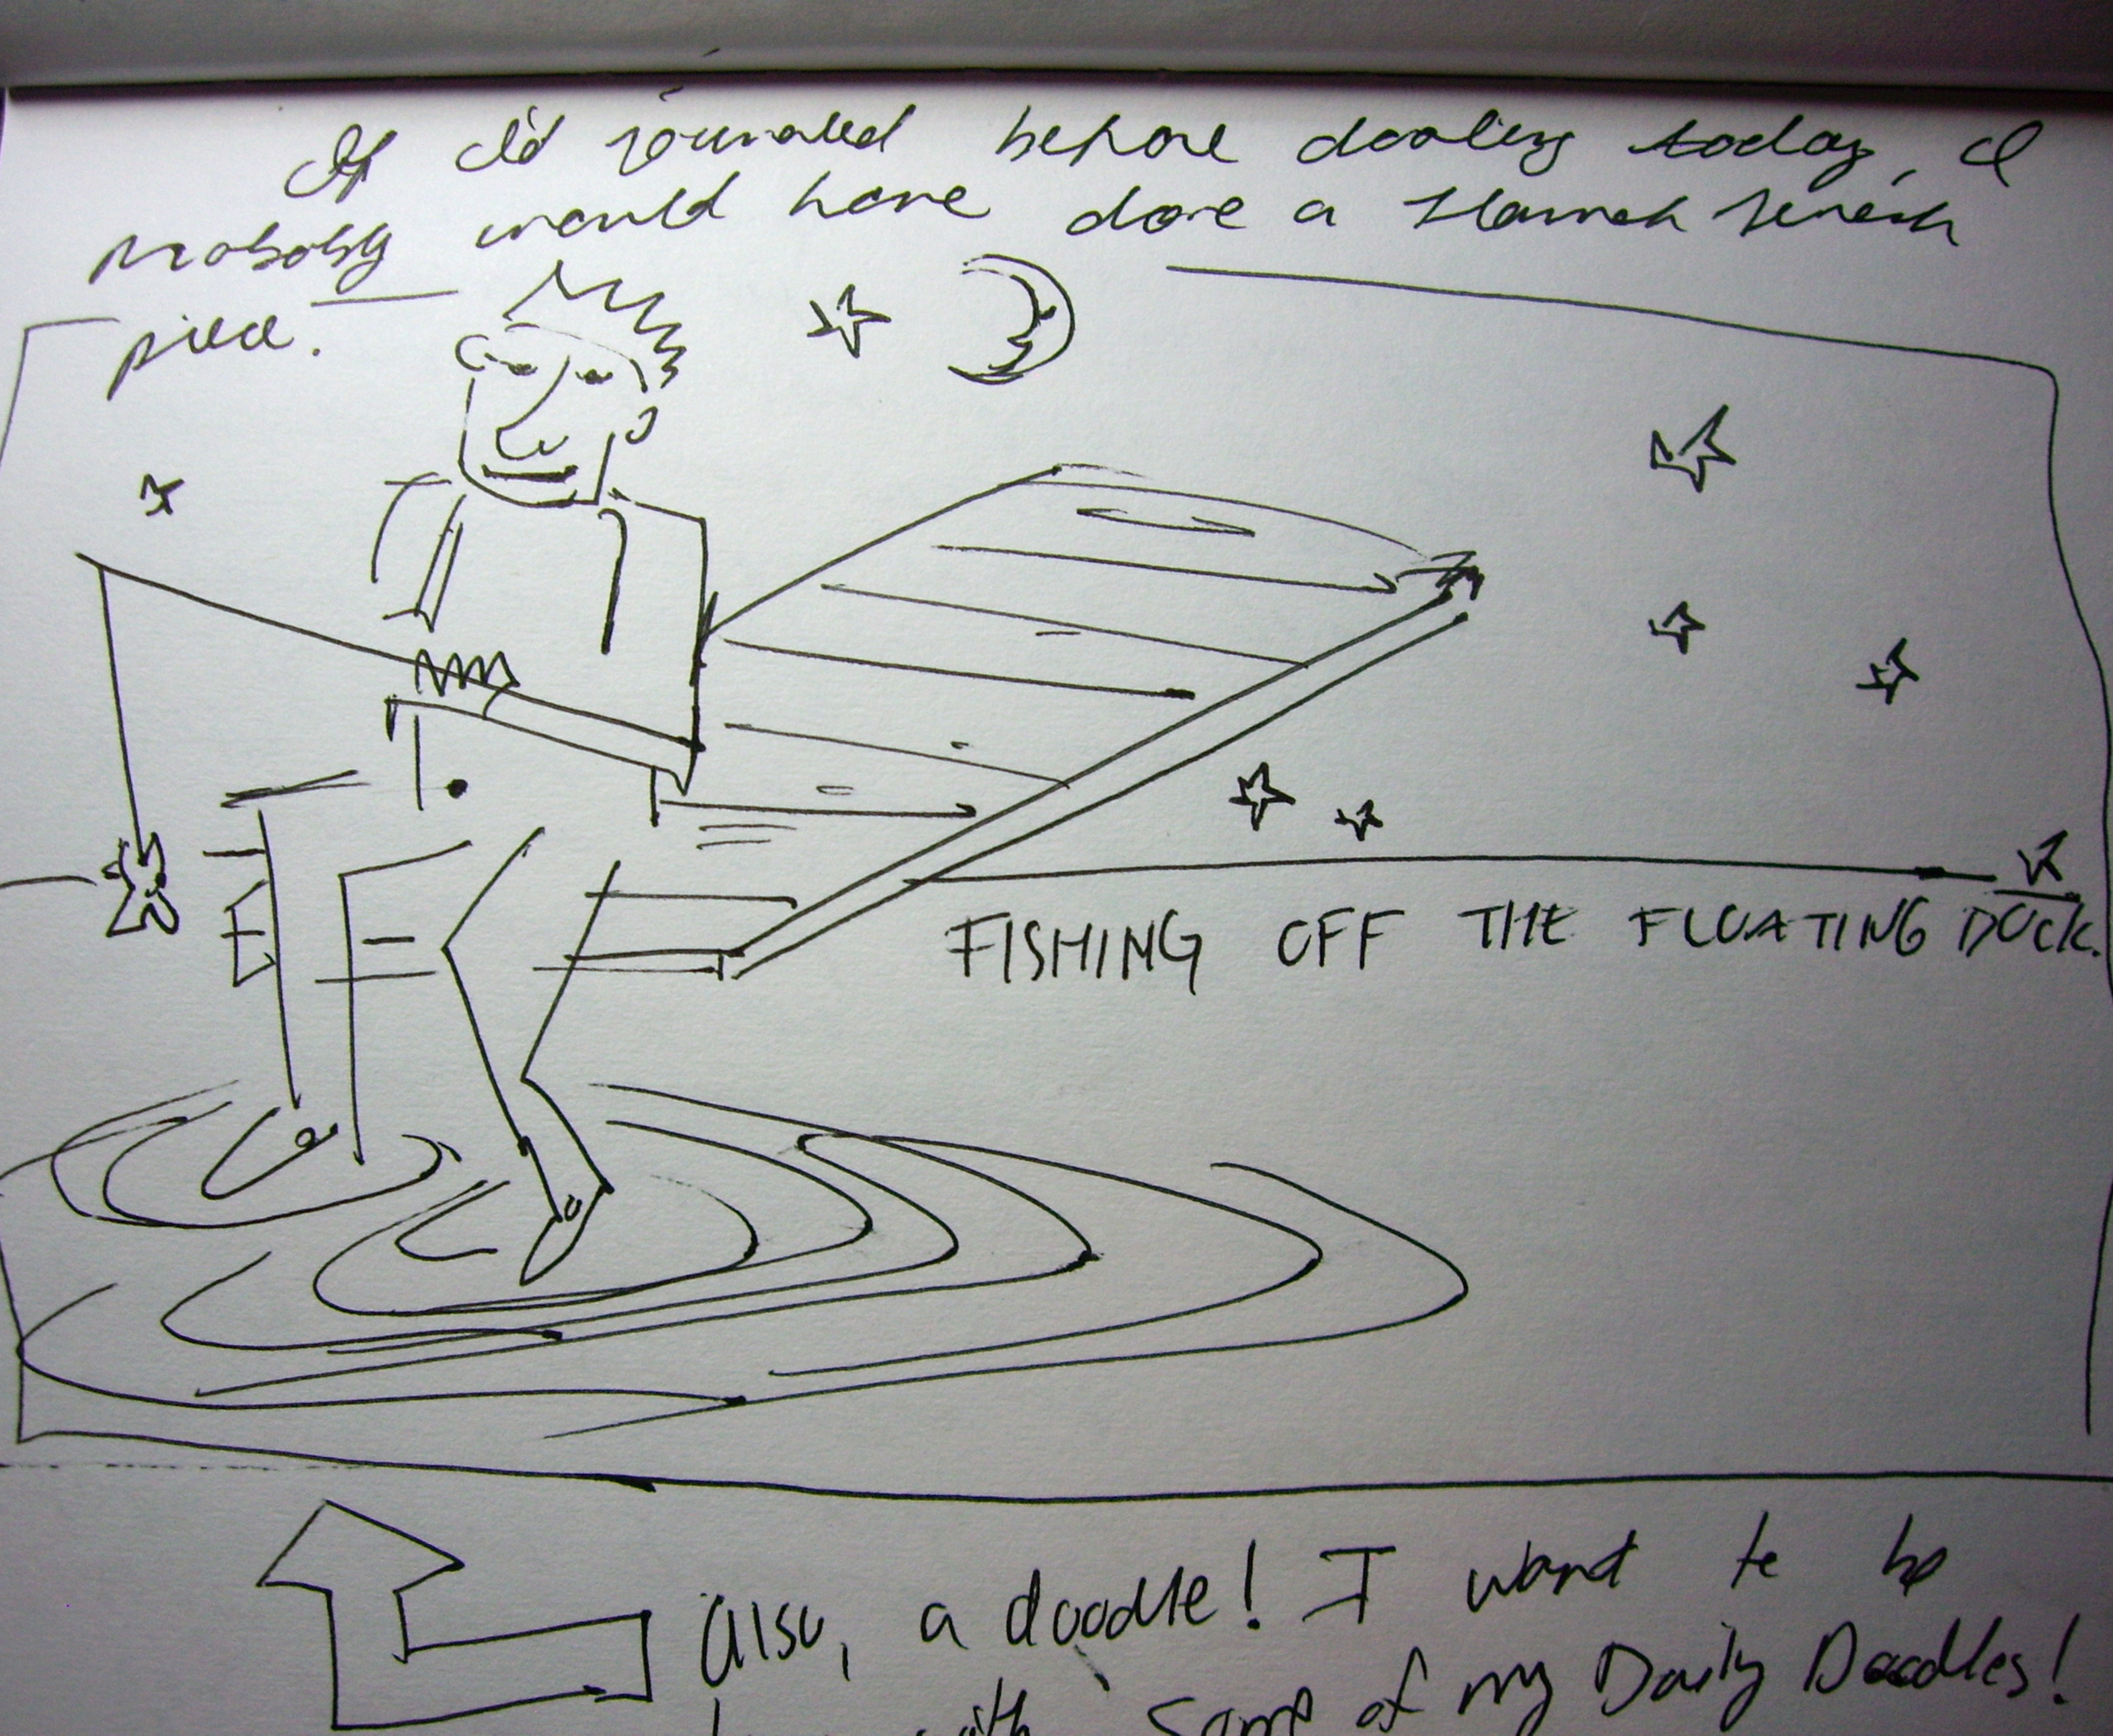 If I'd journaled before dooling today, I
probably would have done a Hannah Senesh
piece.
FISHING OFF THE FLOATING DOCK.
Also, a doodle! I want to be
with some of my Daily Doodles!